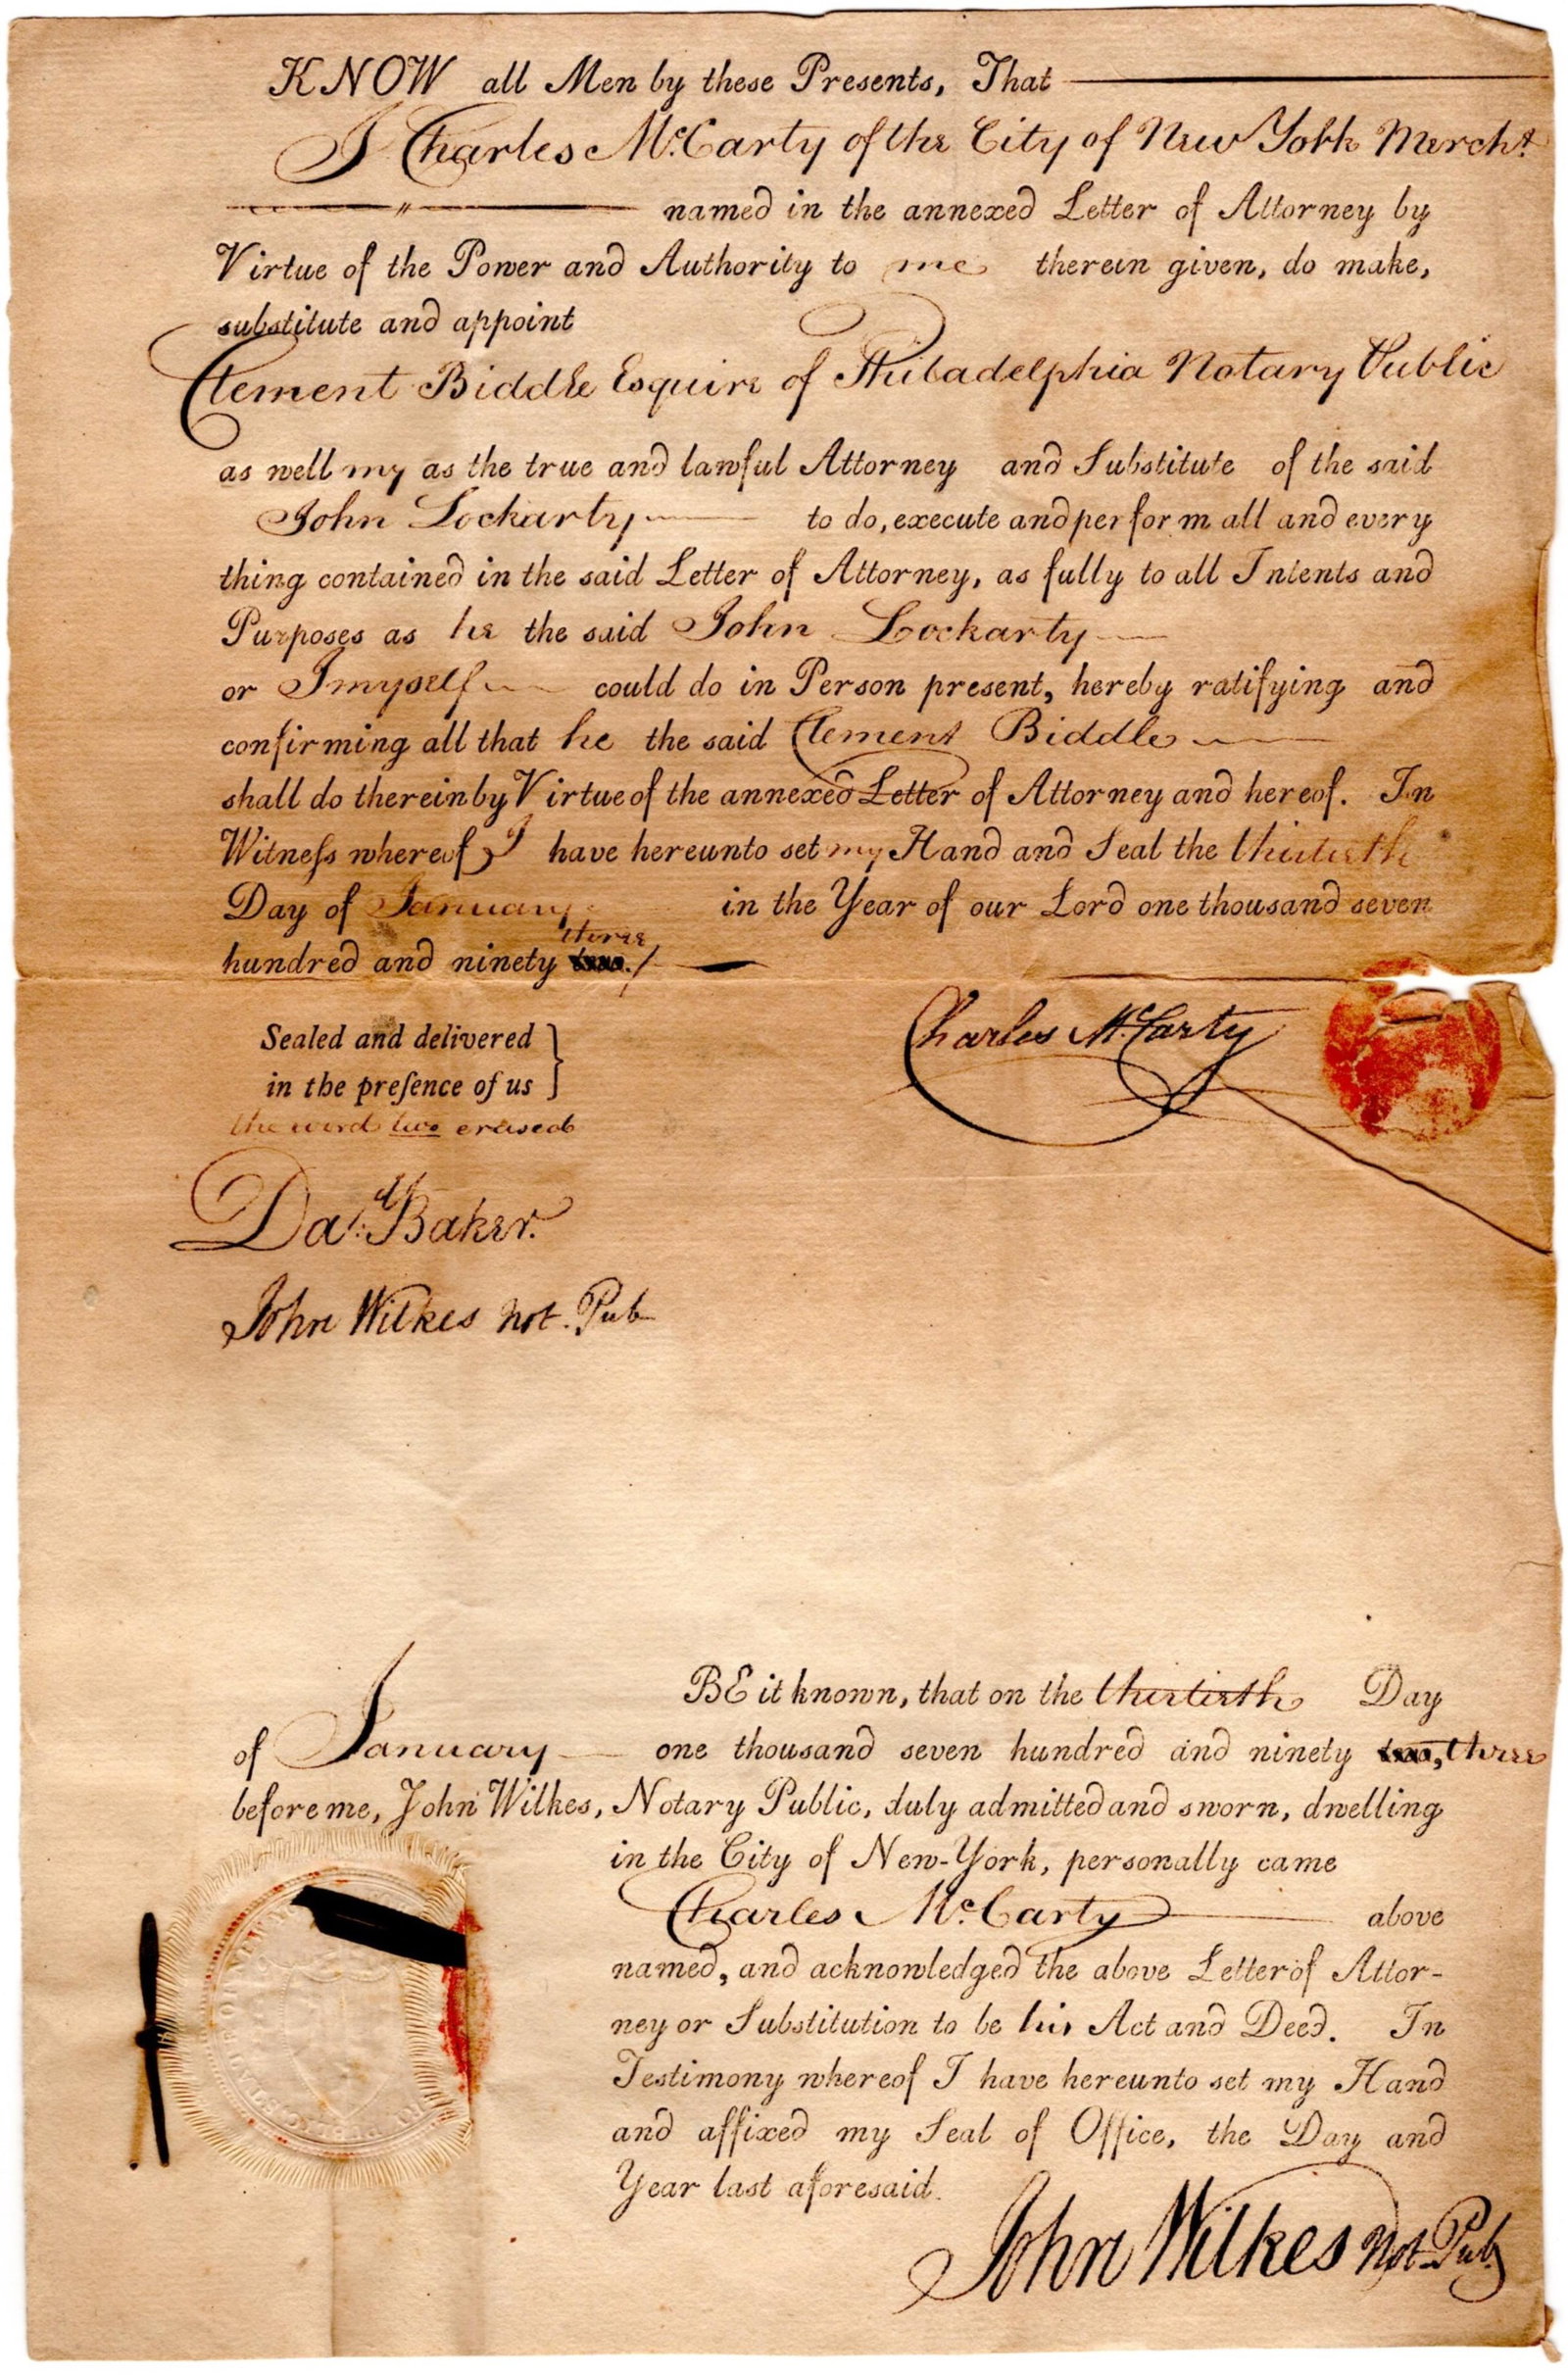 KNOW all Men by these Presents, That
I Charles McCarty of the City of New York Mercht
named in the annexed Letter of Attorney by
Virtue of the Power and Authority to me therein given, do make,
substitute and appoint
Clement Biddle Esquire of Philadelphia Notary Public
as well my as the true and lawful Attorney and Substitute of the said
John Lockarty to do, execute and perform all and every
thing contained in the said Letter of Attorney, as fully to all Intents and
Purposes as he the said John Lockarty
or I myself could do in Person present, hereby ratifying and
confirming all that he the said Clement Biddle
shall do therein by Virtue of the annexed Letter of Attorney and hereof. In
Witneſs whereof I have hereunto set my Hand and Seal the thirtieth
Day of January in the Year of our Lord one thousand seven
three
hundred and ninety two.
Charles McCarty
Sealed and delivered
in the preſence of us
the word two erased
Baker.
John Wilkes Not. Pub
BE it known, that on the thirtieth Day
of January one thousand seven hundred and ninety two, three
before me, John Wilkes, Notary Public, duly admitted and sworn, dwelling
in the City of New-York, personally came
Charles McCarty above
named, and acknowledged the above Letter of Attor-
ney or Substitution to be his Act and Deed. In
Testimony whereof I have hereunto set my Hand
and affixed my Seal of Office, the Day and
Year last aforesaid.
John Wilkes Not. Pub.